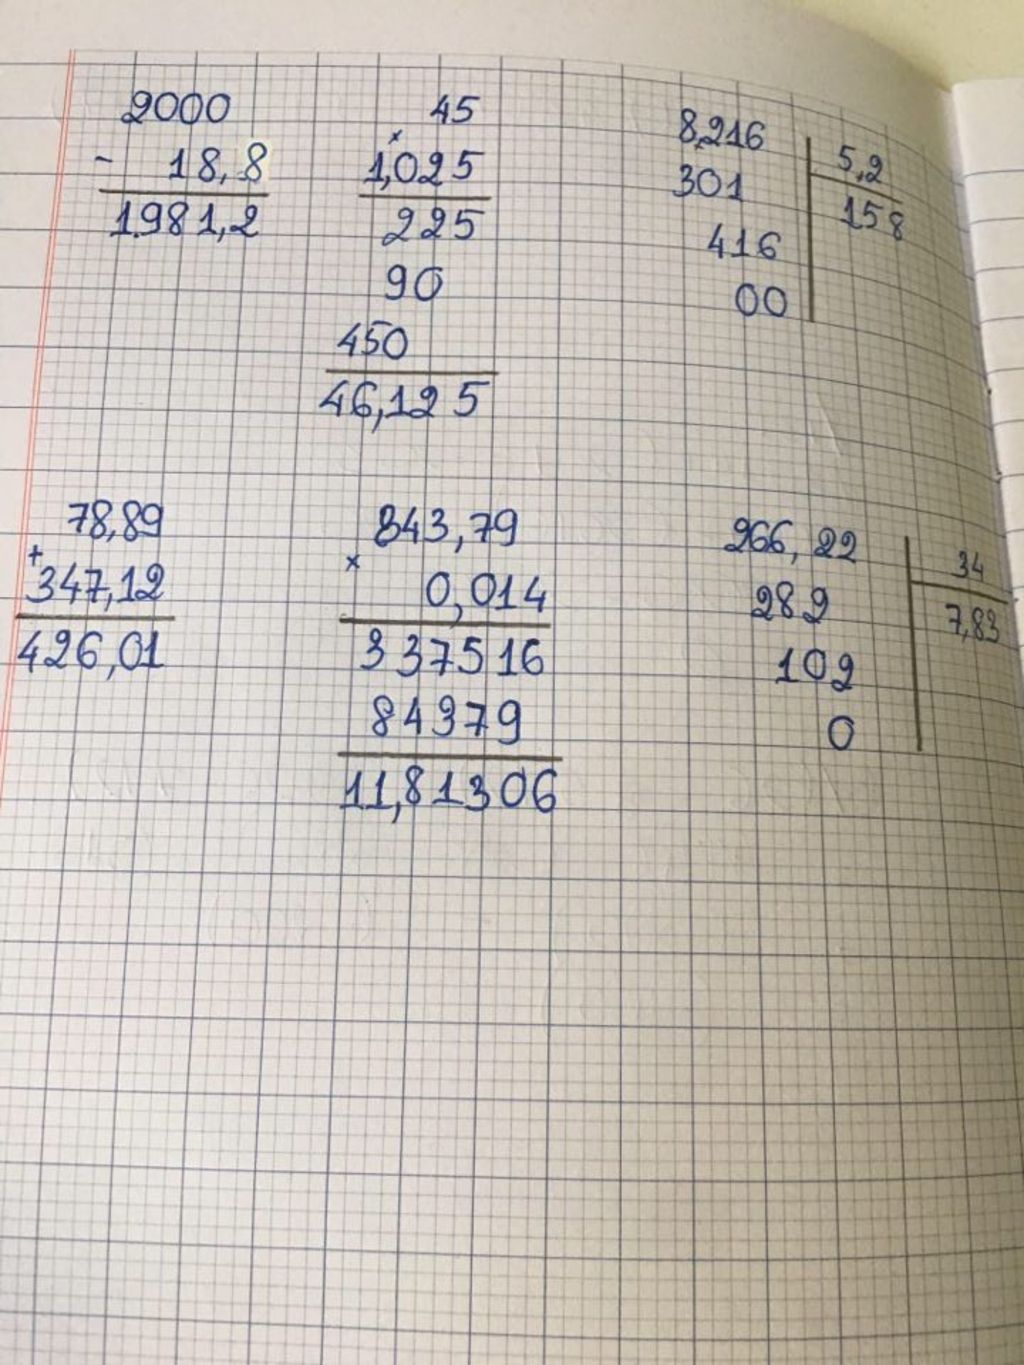 2000
- 18,8
1981,2
45
×
1,025
225
90
450
46,125
8,216
5,2
301
158
416
00
78,89
+
347,12
426,01
843,79
×
0,014
337516
84379
11,81306
266,22
34
282
7,83
102
0